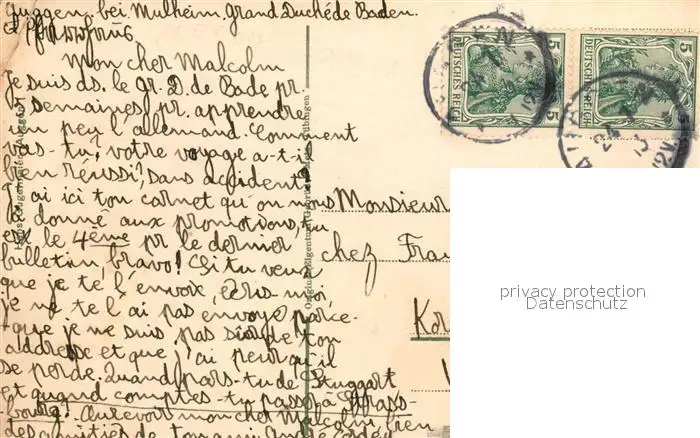 Auggen, bei Mulheim, Grand Duché de Baden.
Mon cher Malcolm
Je suis ds. le Gr. D. de Bade pr.
semaines pr. apprendre
un peu l'allemand. Comment
vas-tu, votre voyage a-t-il
bien réussi, sans accident?
J'ai ici ton carnet qu'on nous
a donné aux promotions, tu
es le 4ème pr le dernier
bulletin, bravo! Si tu veux
que je te l'envoie, écris-moi,
je ne te l'ai pas envoyé parce-
que je ne suis pas sûr de ton
addresse et que j'ai peur qu'il
se perde. Quand pars-tu de Stuggart
et quand comptes-tu passer à Strass-
bourg? Au revoir mon cher Malcolm, bien
des amitiés de ton ami André
Monsieur
chez Fra
Kor
DEUTSCHES REICH
5
5
DEUTSCHES REICH
5
5
privacy protection
Datenschutz